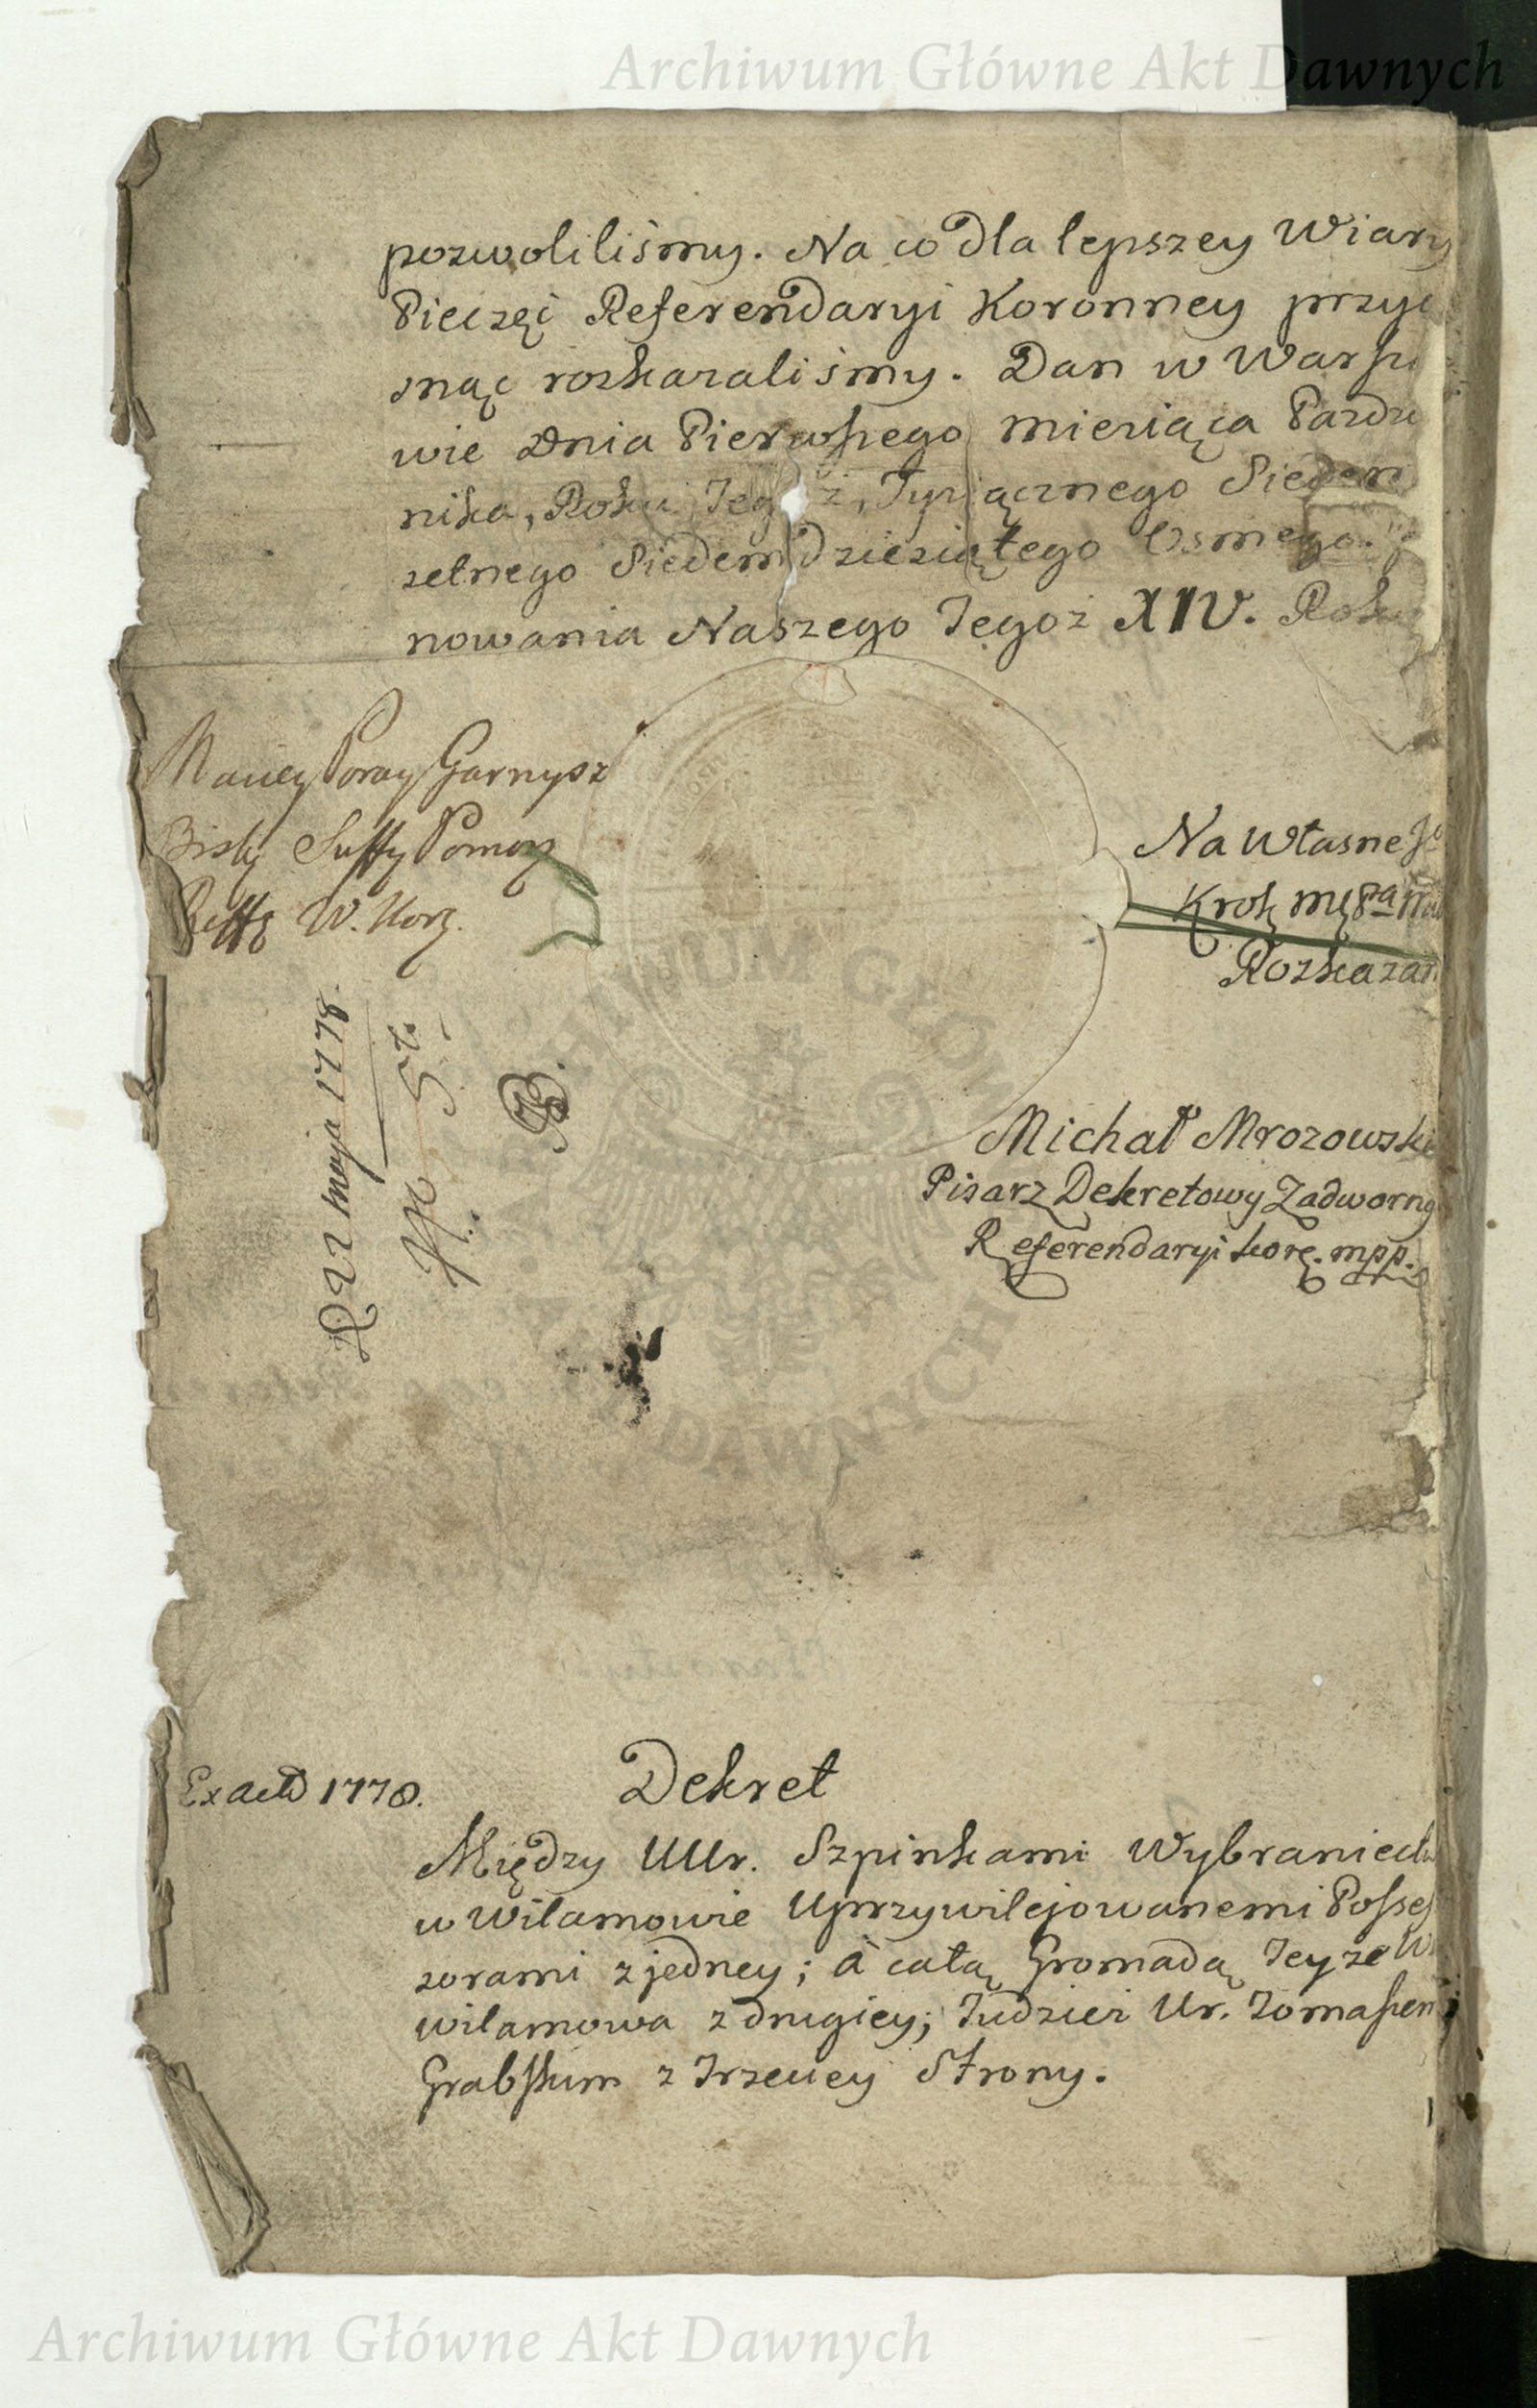 Archiwum Główne Akt Dawnych
pozwoliliśmy. Na co dla lepszey Wiary
Pieczęć Referendaryi Koronney przyc
snąć rozkazaliśmy. Dan w Warsza
wie Dnia Pierwszego Miesiąca Paźdz
nika, Roku Tegoż, Tysiącznego Siedem
setnego Siedemdziesiątego Osmego.
nowania Naszego Tegoż XIV. Roku
Maciey Poray Garnysz
Suffy Pomor
W. Kor.
Na Własne
Krok mę
Rozkazan
R 22 maja 1778.
Michał Mrozowski
Pisarz Dekretowy Zadworny
Referendaryi kore. mpp.
ARCHIWUM GŁÓWNE
AKT DAWNYCH
Dekret
Ex actis 1778.
Między UUr. Szpinkami Wybranieck
w Wilamowie Uprzywilejowanemi Posses
sorami z jedney; à całą Gromadą Teyże W
Wilamowa z drugiey; Tudzież Ur. Tomaszem
Grabskim z Trzeciey Strony.
Archiwum Główne Akt Dawnych